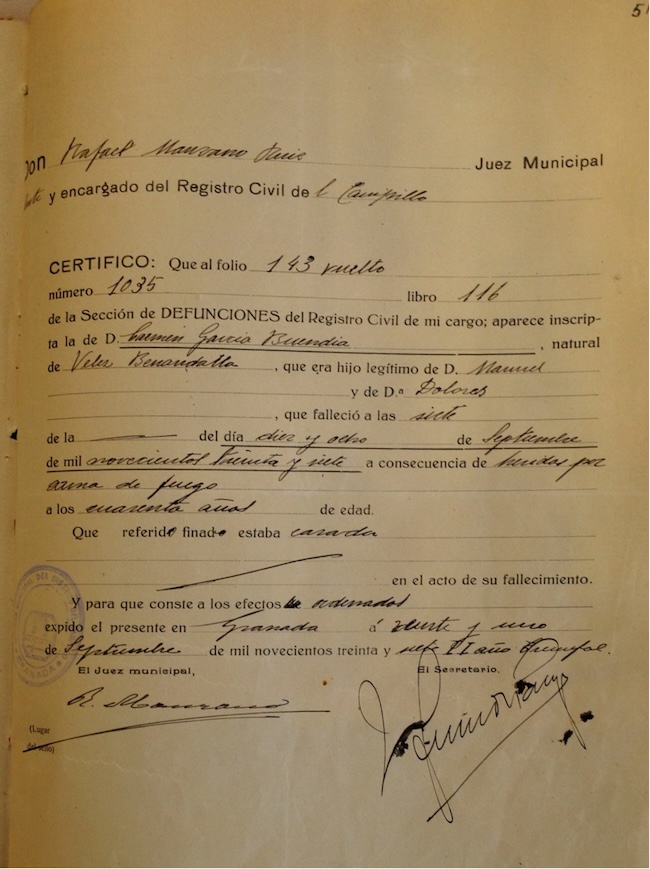 5
Don Rafael Manzano Ruiz Juez Municipal
y encargado del Registro Civil de l Campillo
CERTIFICO: Que al folio 143 vuelto
número 1035 libro 116
de la Sección de DEFUNCIONES del Registro Civil de mi cargo; aparece inscrip-
ta la de D. Carmen Garcia Buendia, natural
de Velez Benaudalla, que era hijo legítimo de D. Manuel
y de D.ª Dolores
, que falleció a las siete
de la — del día diez y ocho de Septiembre
de mil novecientos treinta y siete a consecuencia de heridas por
arma de fuego
a los cuarenta años de edad.
Que referido finado estaba casada
en el acto de su fallecimiento.
Y para que conste a los efectos ordenados
expido el presente en Granada á veinte y uno
de Septiembre de mil novecientos treinta y siete II año Triunfal.
El Juez municipal, El Secretario,
R. Manzano
(Lugar
del sello)